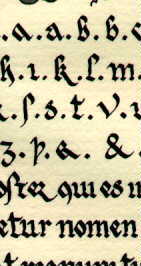 . a. a. b. b. c
h. ı. k. l. m.
. ſ. s. t. v. u
ʒ. p. &
oſter qui es in
etur nomen